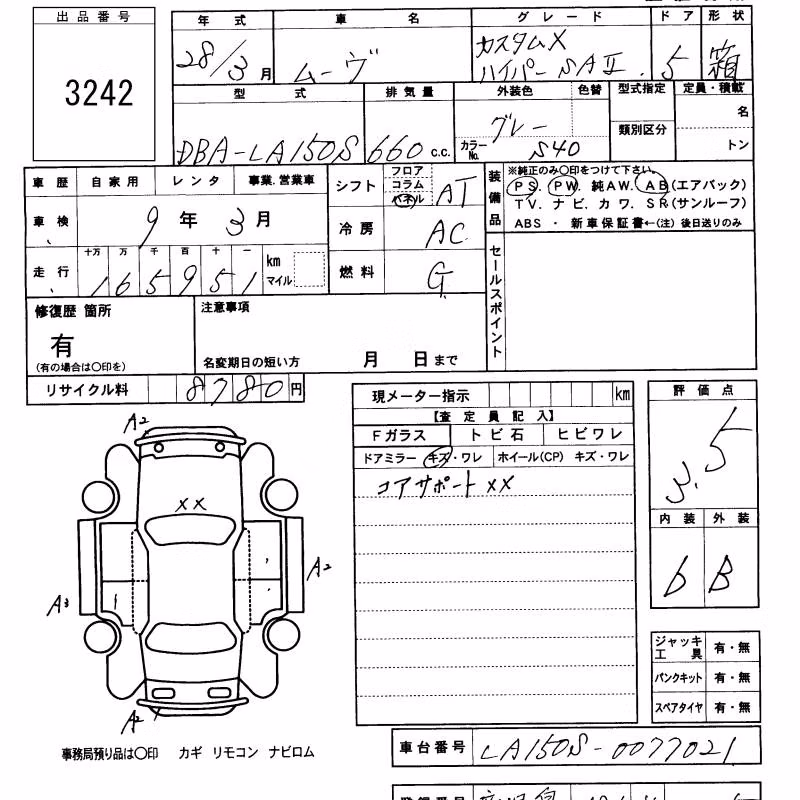 出品番号
3242
年式 車名 グレード ドア 形状
28/3月 ムーヴ カスタムX
ハイパーSAⅡ 5 箱
型式 排気量 外装色 色替 型式指定 定員・積載
DBA-LA150S 660 c.c. グレー 類別区分 名
カラーNo. S40 トン
車歴 自家用 レンタ 事業.営業車
車検 9年3月
走行 十万 万 千 百 十 一 km マイル
165951
シフト フロア コラム パネル AT
冷房 AC
燃料 G
装備品
※純正のみ〇印をつけて下さい。
PS. PW. 純AW. AB(エアバック)
TV. ナビ. カワ. SR(サンルーフ)
ABS ・ 新車保証書←(注) 後日送りのみ
セールスポイント
修復歴 箇所
有
(有の場合は〇印を)
注意事項
名変期日の短い方 月 日まで
リサイクル料 8780円
現メーター指示 km
【査定員記入】
Fガラス トビ石 ヒビワレ
ドアミラー キズ・ワレ ホイール(CP) キズ・ワレ
コアサポート XX
評価点
3.5
内装 外装
b B
A2
XX
A2
A3
A2
ジャッキ工具 有・無
パンクキット 有・無
スペアタイヤ 有・無
事務局預り品は〇印 カギ リモコン ナビロム
車台番号 LA150S-0077021